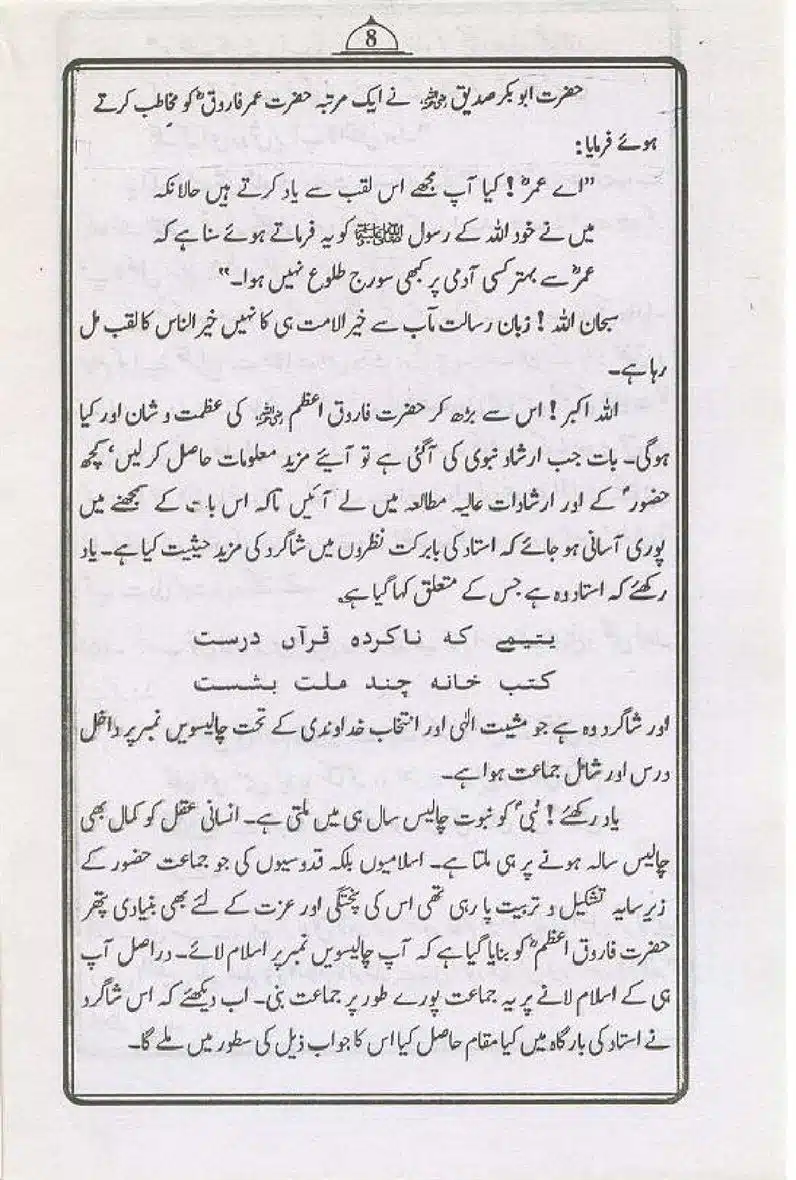 8
حضرت ابوبکر صدیق رضی اللہ عنہ نے ایک مرتبہ حضرت عمر فاروقؓ کو مخاطب کرتے
ہوئے فرمایا:
”اے عمرؓ! کیا آپ مجھے اس لقب سے یاد کرتے ہیں حالانکہ
میں نے خود اللہ کے رسول ﷺ کو یہ فرماتے ہوئے سنا ہے کہ
عمرؓ سے بہتر کسی آدمی پر کبھی سورج طلوع نہیں ہوا۔“
سبحان اللہ! زبان رسالت مآب سے خیر الامت ہی کا نہیں خیر الناس کا لقب مل
رہا ہے۔
اللہ اکبر! اس سے بڑھ کر حضرت فاروق اعظم رضی اللہ عنہ کی عظمت و شان اور کیا
ہوگی۔ بات جب ارشاد نبوی کی آگئی ہے تو آیئے مزید معلومات حاصل کر لیں، کچھ
حضورؐ کے اور ارشادات عالیہ مطالعہ میں لے آئیں تاکہ اس بات کے سمجھنے میں
پوری آسانی ہو جائے کہ استاد کی بابرکت نظروں میں شاگرد کی مزید حیثیت کیا ہے۔ یاد
رکھئے کہ استاد وہ ہے جس کے متعلق کہا گیا ہے۔
یتیمے کہ ناکردہ قرآں درست
کتب خانہ چند ملت بشست
اور شاگرد وہ ہے جو مشیت الٰہی اور انتخاب خداوندی کے تحت چالیسویں نمبر پر داخل
درس اور شامل جماعت ہوا ہے۔
یاد رکھئے! نبیؐ کو نبوت چالیس سال ہی میں ملتی ہے۔ انسانی عقل کو کمال بھی
چالیس سالہ ہونے پر ہی ملتا ہے۔ اسلامیوں بلکہ قدوسیوں کی جو جماعت حضور کے
زیر سایہ تشکیل و تربیت پا رہی تھی اس کی پختگی اور عزت کے لئے بھی بنیادی پتھر
حضرت فاروق اعظمؓ کو بنایا گیا ہے کہ آپ چالیسویں نمبر پر اسلام لائے۔ دراصل آپ
ہی کے اسلام لانے پر یہ جماعت پورے طور پر جماعت بنی۔ اب دیکھئے کہ اس شاگرد
نے استاد کی بارگاہ میں کیا مقام حاصل کیا اس کا جواب ذیل کی سطور میں ملے گا۔